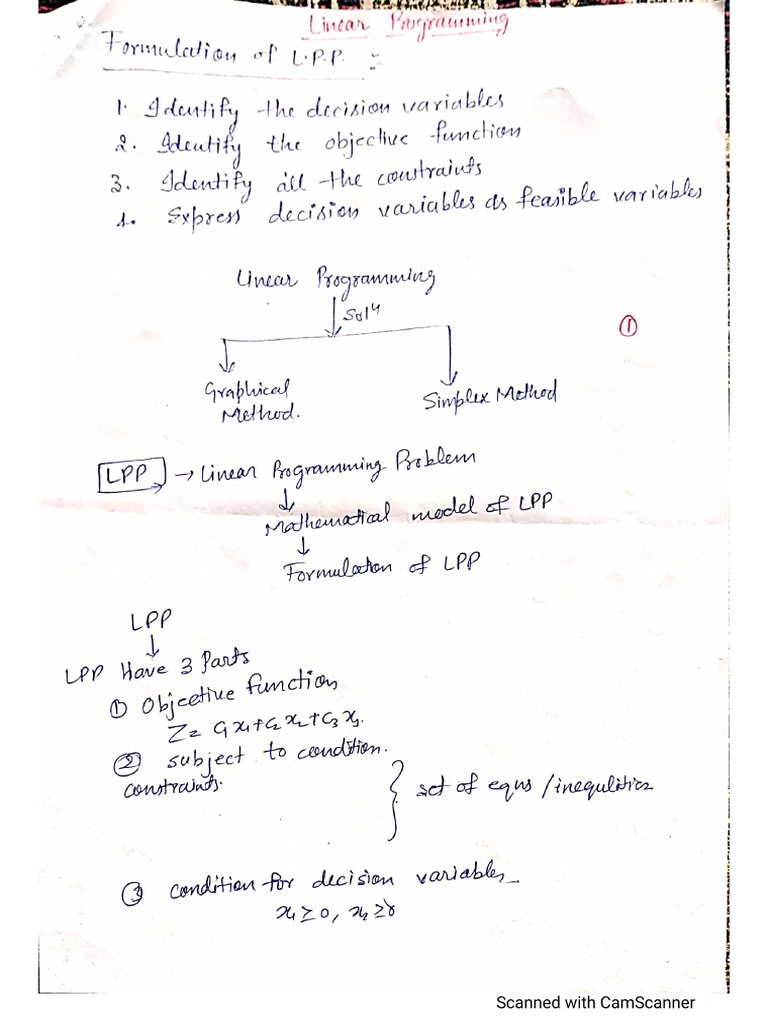 Linear Programming
Formulation of L.P.P. :-
1. Identify the decision variables
2. Identify the objective function
3. Identify all the constraints
4. Express decision variables as feasible variables
Linear Programming
↓ Solⁿ
Graphical Method.
Simplex Method
①
LPP → Linear Programming Problem
↓
Mathematical model of LPP
↓
Formulation of LPP
LPP
↓
LPP Have 3 Parts
① Objective function
Z = C₁x₁+C₂x₂+C₃x₃.
② subject to condition.
constraints. } set of equs / inequlities
③ condition for decision variables
x₁ ≥ 0, x₂ ≥ 0
Scanned with CamScanner